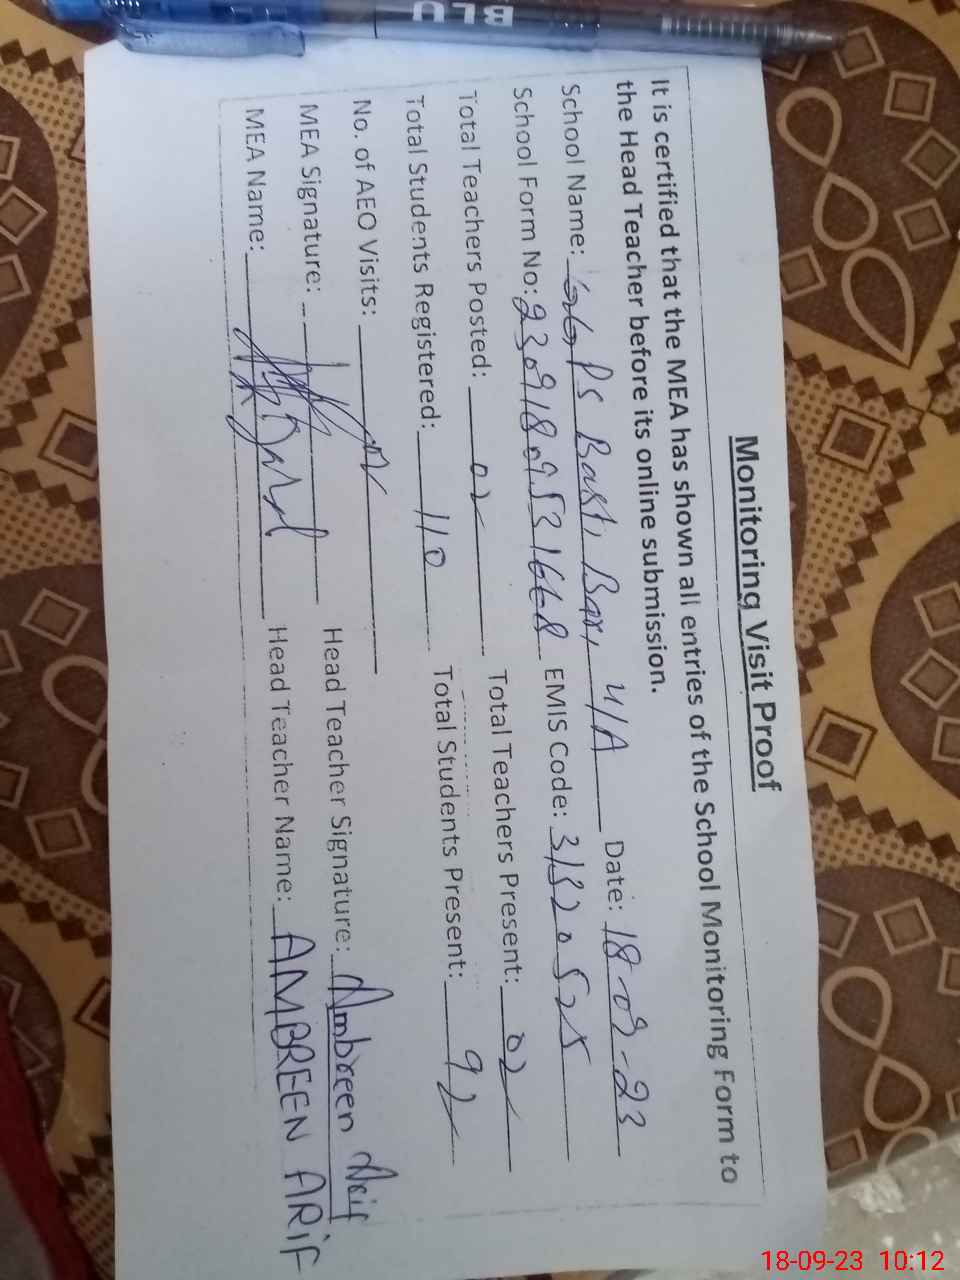 Monitoring Visit Proof
It is certified that the MEA has shown all entries of the School Monitoring Form to
the Head Teacher before its online submission.
School Name: GGPS Basti Bari 4/A Date: 18-09-23
School Form No: EMIS Code: 31320525
Total Teachers Posted: 02 Total Teachers Present: 02
Total Students Registered: 110 Total Students Present: 92
No. of AEO Visits:
MEA Signature: Head Teacher Signature: Ambreen Arif
MEA Name: Head Teacher Name: AMBREEN ARIF
18-09-23 10:12